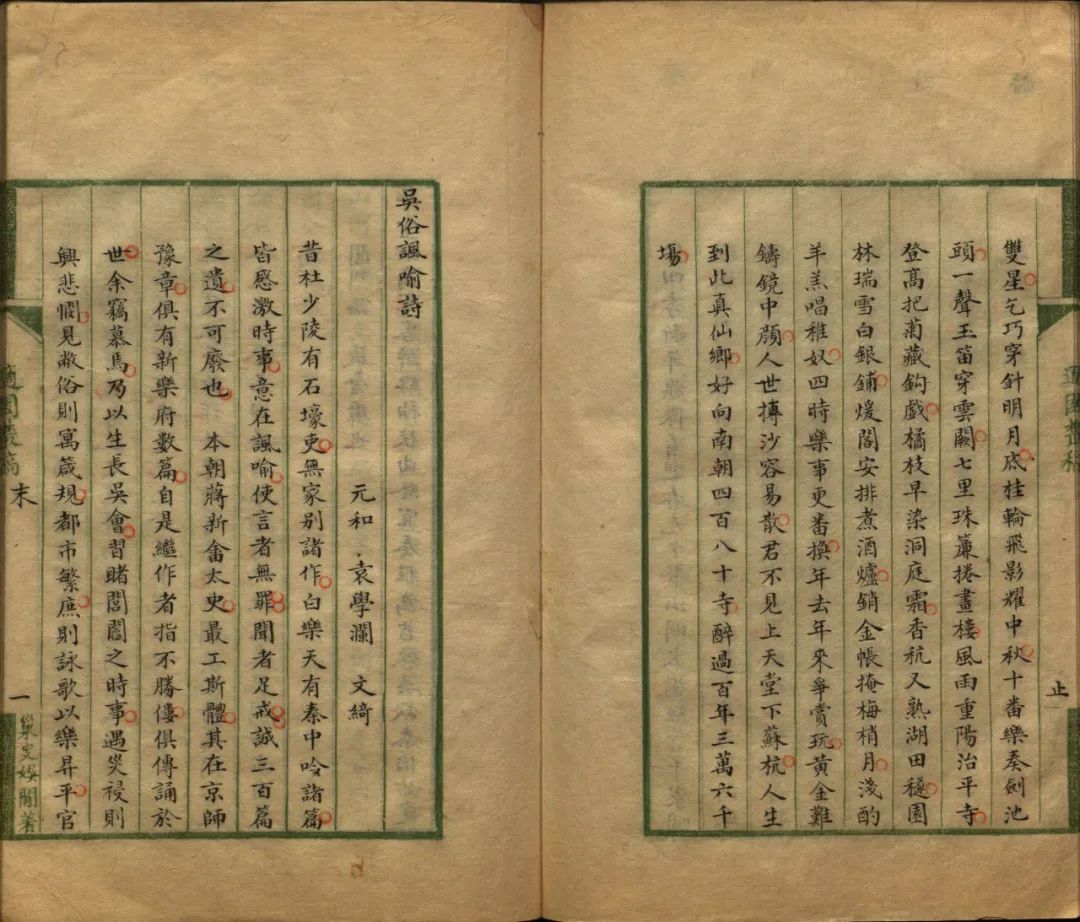 雙星乞巧穿針明月底桂輪飛影耀中秋十番樂奏劍池
頭一聲玉笛穿雲闕七里珠簾捲畫樓風雨重陽治平寺
登高把菊藏鈎戲橘枝早染洞庭霜香秔又熟湖田穟園
林瑞雪白銀鋪煖閣安排煮酒爐銷金帳掩梅梢月淺酌
羊羔唱稚奴四時樂事更番換年去年來爭賞玩黃金難
鑄鏡中顏人世摶沙容易散君不見上天堂下蘇杭人生
到此真仙鄉好向南朝四百八十寺醉過百年三萬六千
場
止
吳俗諷喻詩
元和 袁學瀾 文綺
昔杜少陵有石壕吏無家别諸作白樂天有秦中吟諸篇
皆感激時事意在諷喻使言者無罪聞者足戒誠三百篇
之遺不可廢也 本朝蔣新畬太史最工斯體其在京師
豫章俱有新樂府數篇自是繼作者指不勝僂俱傳誦於
世余竊慕焉乃以生長吳會習睹閭閻之時事遇災祲則
興悲憫見敝俗則寓箴規都市繁庶則詠歌以樂昇平官
適園叢稿
末
一